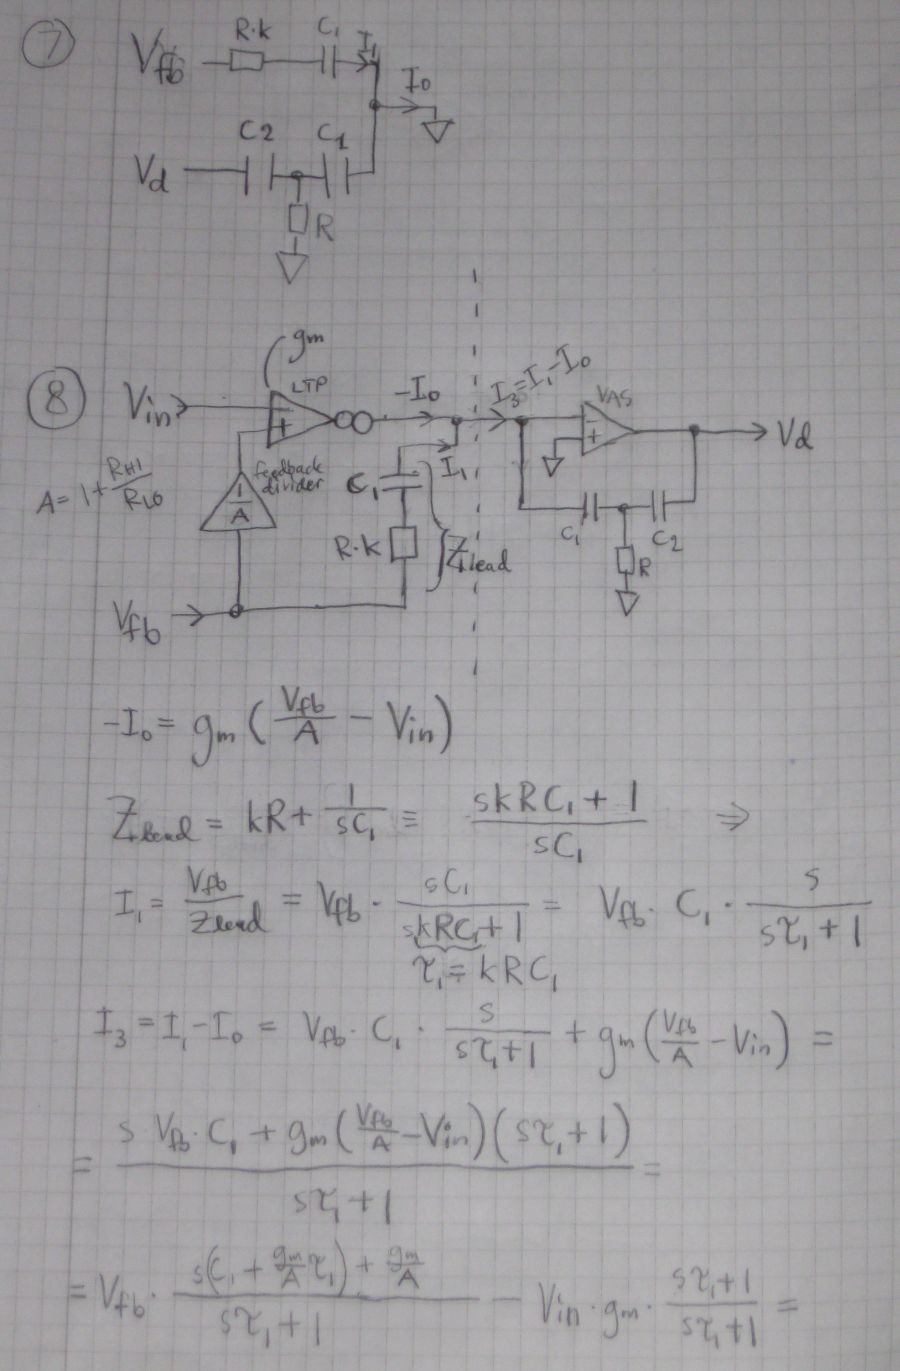 7
R·k C₁ I₁
V_fb
I₀
C2 C1
V_d
R
g_m
8
V_in LTP -I₀ I₃=I₁-I₀ VAS V_d
- +
- +
A = 1 + R_HI / R_LO
1/A feedback divider
C₁ I₁
R·k Z_lead
C₁ C2
R
V_fb
-I₀ = g_m ( V_fb / A - V_in )
Z_lead = kR + 1 / sC₁ ≡ (skRC₁ + 1) / sC₁ ⇒
I₁ = V_fb / Z_lead = V_fb · sC₁ / (skRC₁ + 1) = V_fb · C₁ · s / (sτ₁ + 1)
τ₁ = kRC₁
I₃ = I₁ - I₀ = V_fb · C₁ · s / (sτ₁ + 1) + g_m ( V_fb / A - V_in ) =
= (s V_fb · C₁ + g_m ( V_fb / A - V_in ) ( sτ₁ + 1 )) / (sτ₁ + 1) =
= V_fb · (s(C₁ + g_m / A τ₁) + g_m / A) / (sτ₁ + 1) - V_in · g_m · (sτ₁ + 1) / (sτ₁ + 1) =